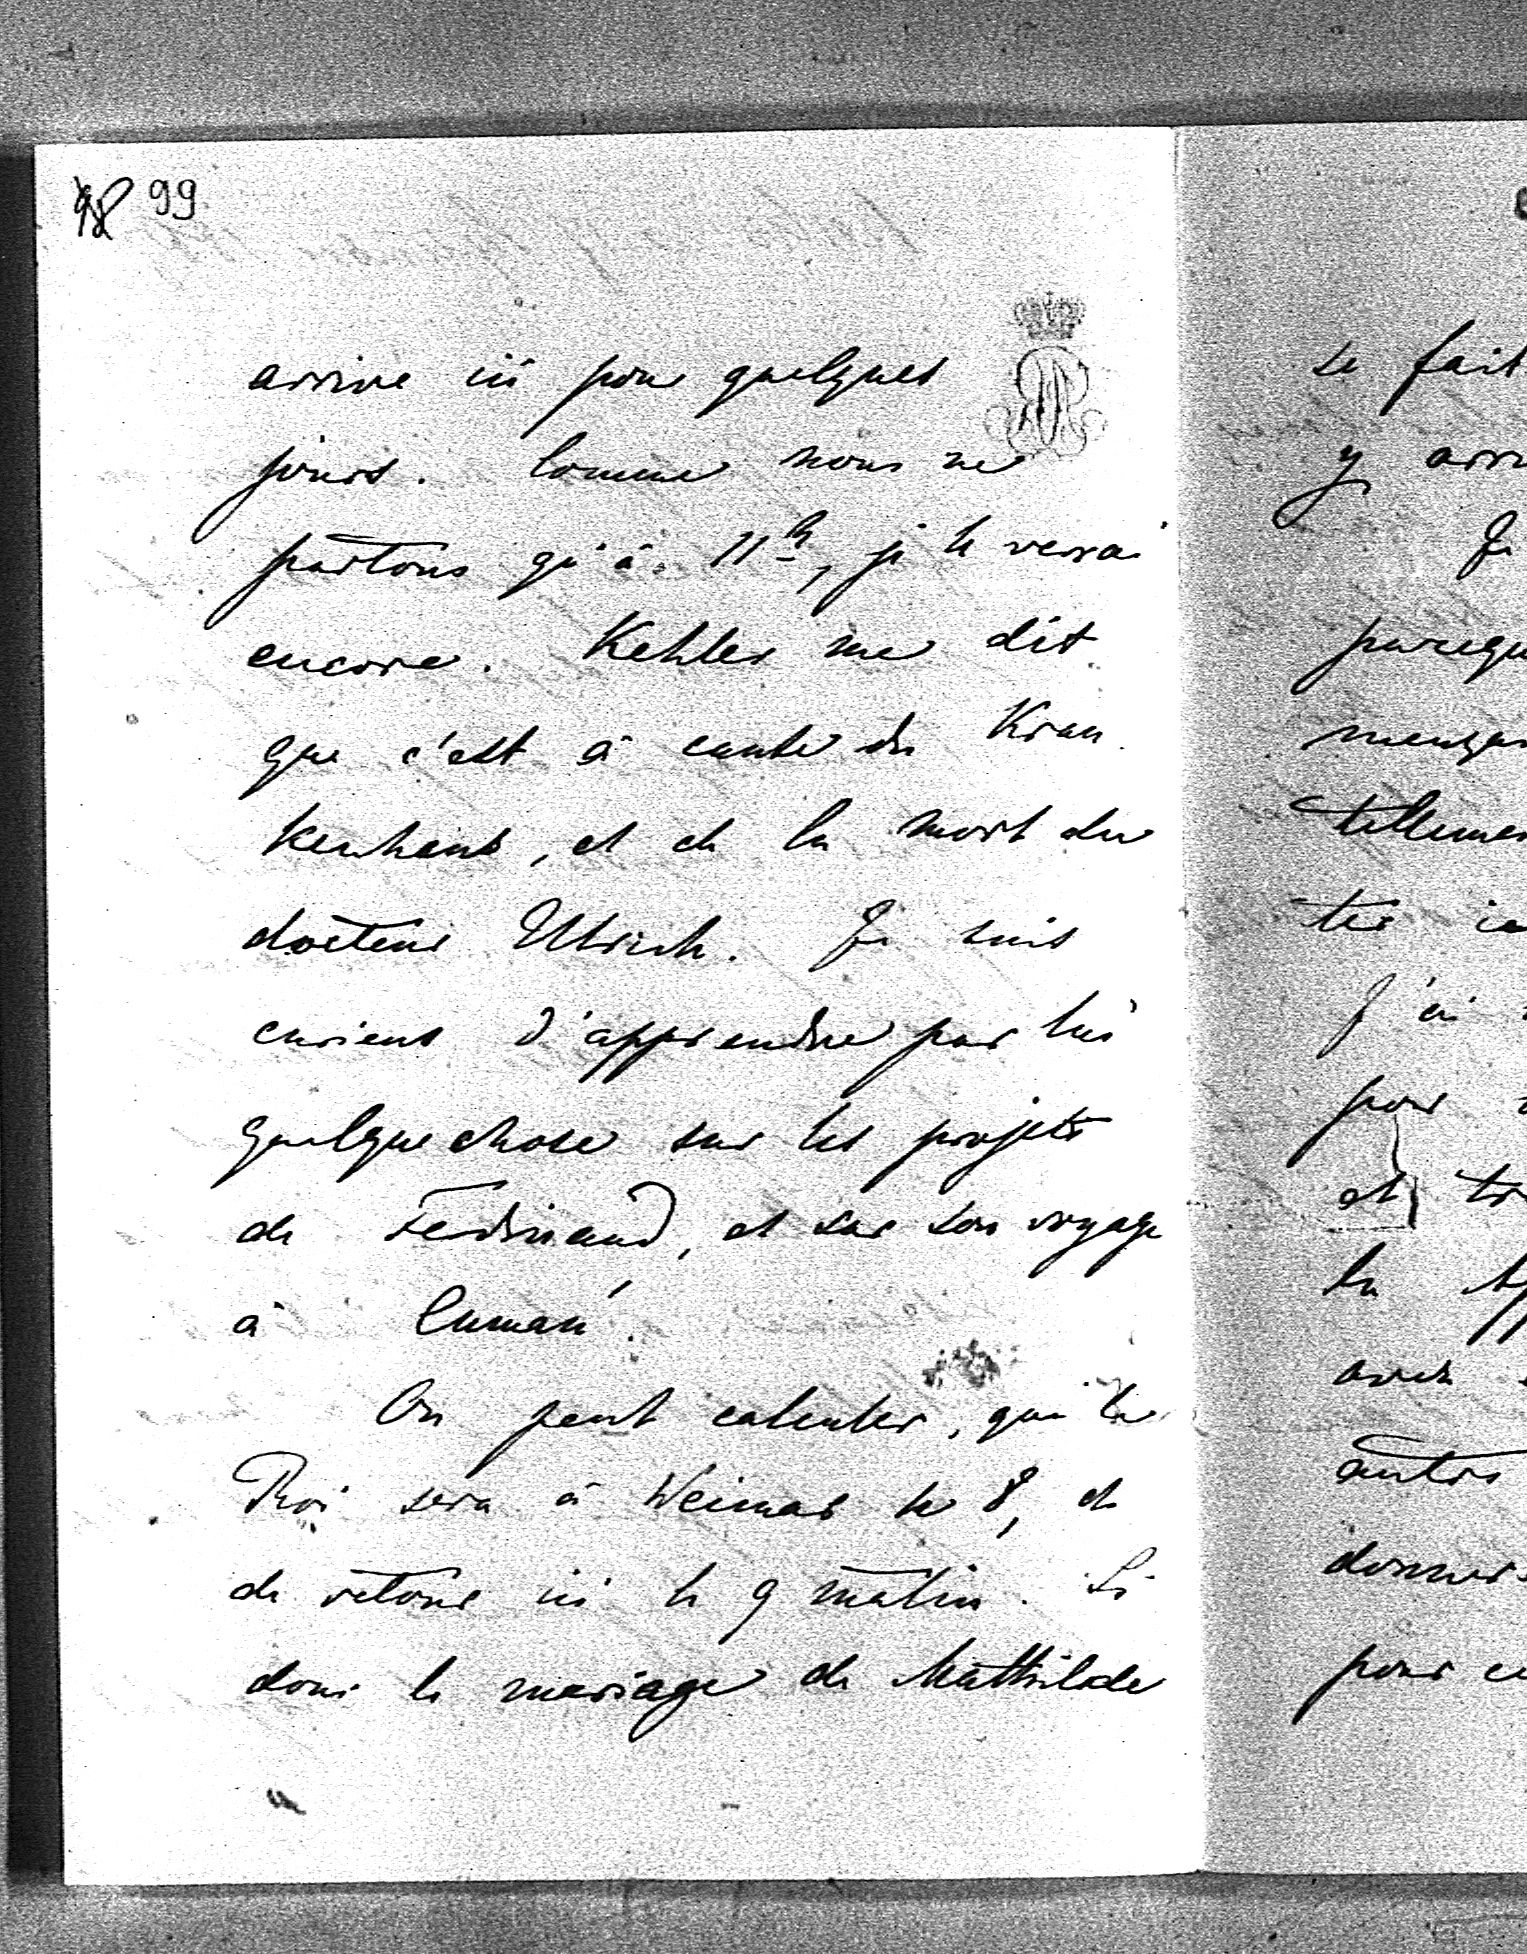 99
arrive ici pour quelques
jours. Comme nous ne
partons qu'à 11h, je le verrai
encore. Kehler me dit
que c'est à cause du Kran
kenhaus, et de la mort du
docteur Ulrich. Je suis
curieux d'apprendre par lui
quelque chose sur les projets
de Ferdinand, et sur son voyage
à
On peut calculer, que le
Roi sera à Weimar le 8, et
de retour ici le 9 matin. Si
donc le mariage de Mathilde
se fait
y
Je
tellement
J'ai
pour
et
la
avec
autres
donner
pour